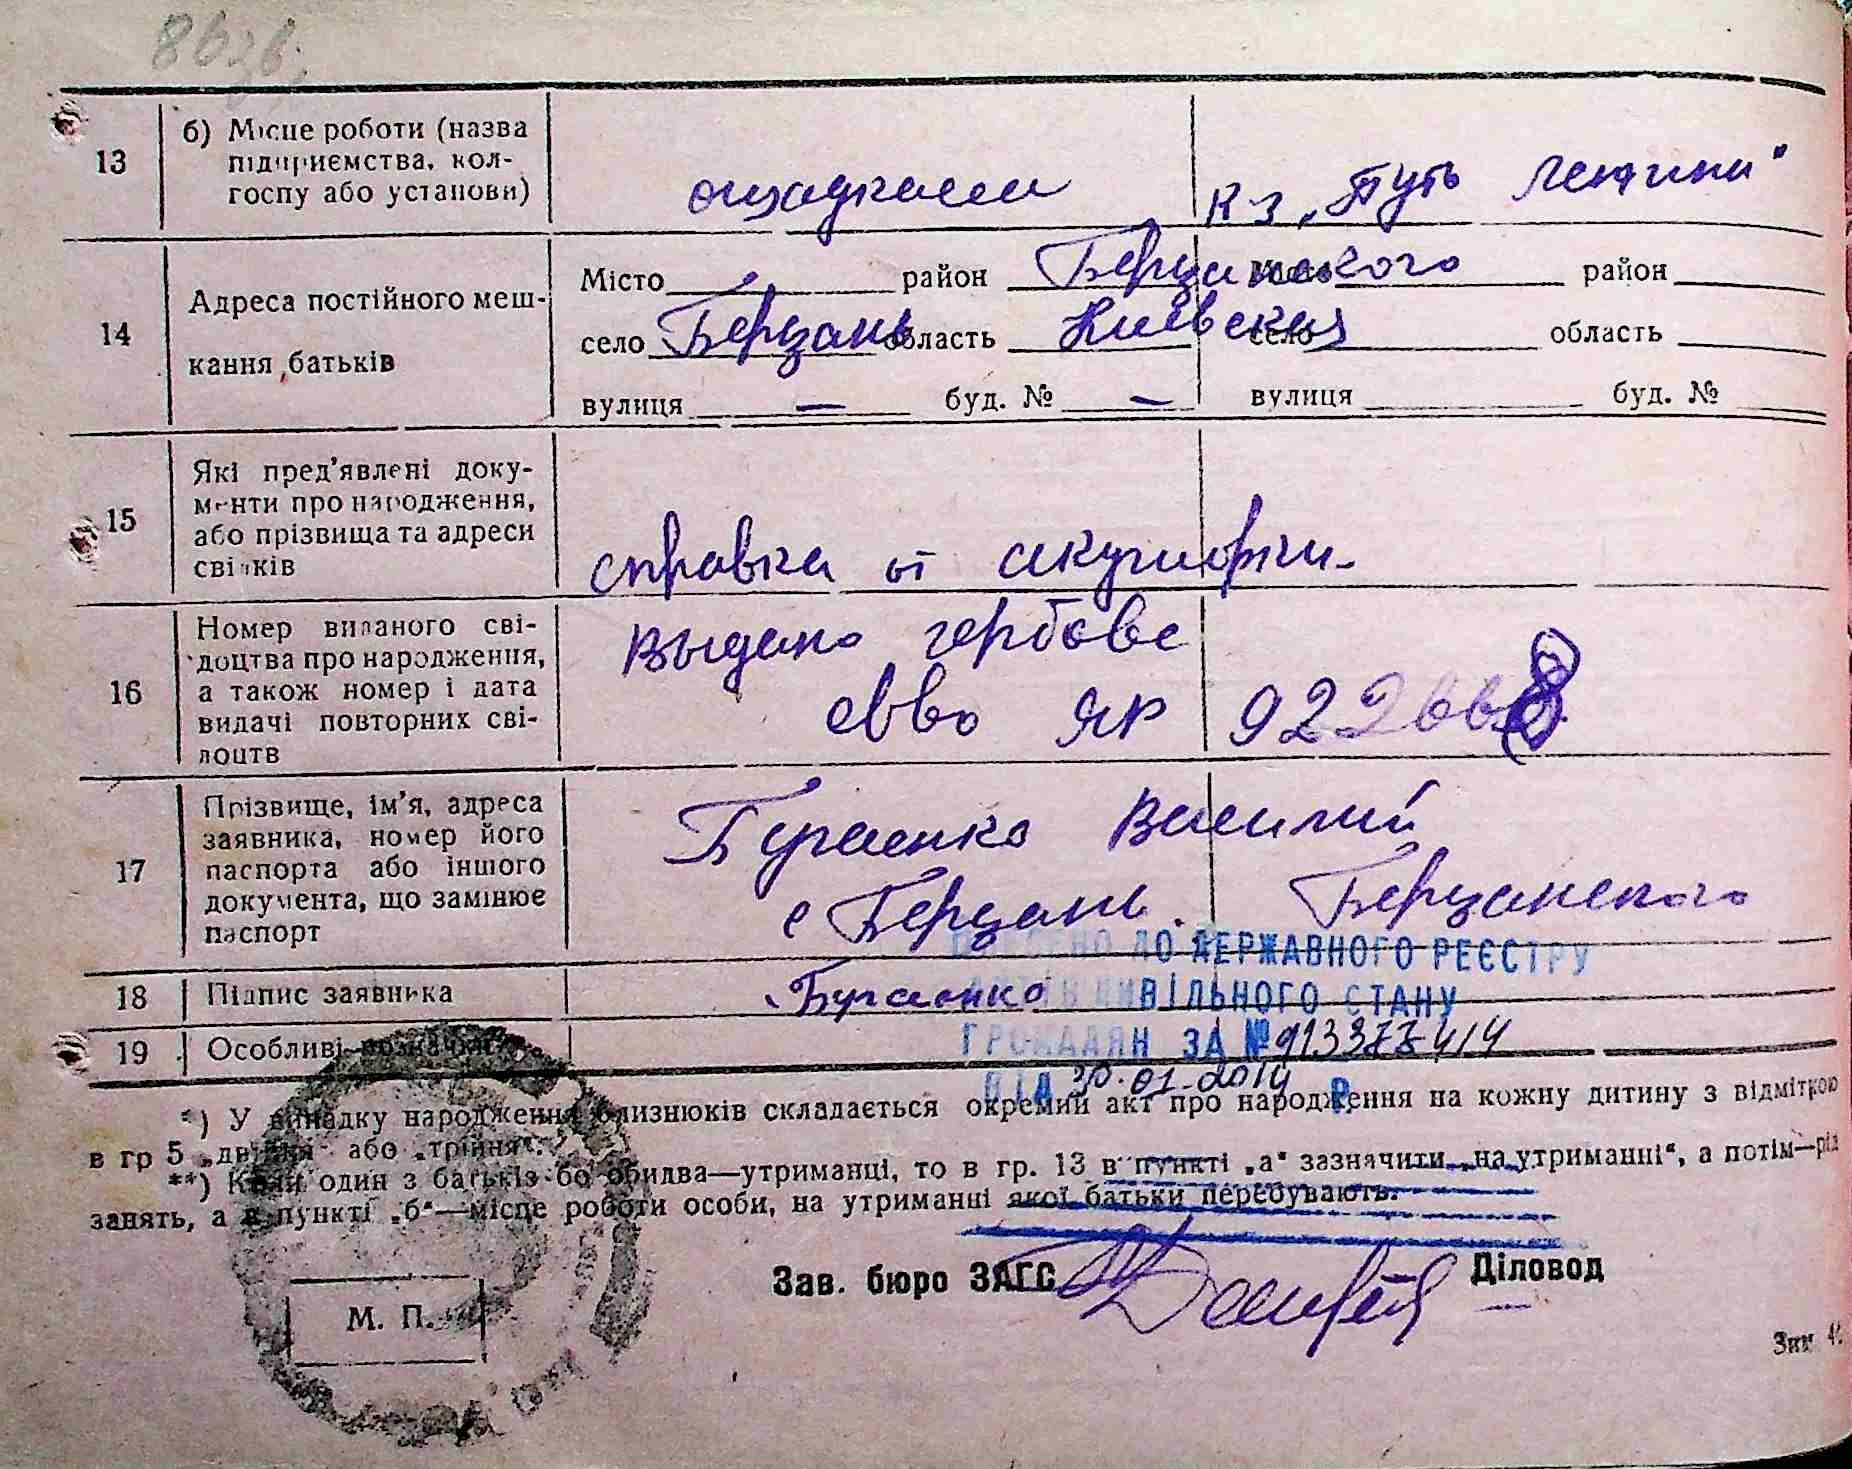 13
б) Місце роботи (назва
підприємства, кол-
госпу або установи)
ощадкаса
к з „Путь Ленина"
14
Адреса постійного меш-
кання батьків
Місто район Березанского район
село Березань область Киевская село область
вулиця — буд. № — вулиця буд. №
15
Які пред'явлені доку-
менти про народження,
або прізвища та адреси
свідків
справка от акушорки
16
Номер виданого сві-
доцтва про народження,
а також номер і дата
видачі повторних сві-
доцтв
Выдано гербове
свво ЯР 922668
17
Прізвище, ім'я, адреса
заявника, номер його
паспорта або іншого
документа, що замінює
паспорт
Василий
с Березань. Березанского
18
Підпис заявника
19
Особливі позначки
ВНЕСЕНО ДО ДЕРЖАВНОГО РЕЄСТРУ
АКТІВ ЦИВІЛЬНОГО СТАНУ
ГРОМАДЯН ЗА №
ВІД 30.01.2014 Р.
*) У випадку народження близнюків складається окремий акт про народження на кожну дитину з відміткою
в гр 5 „двійня" або „трійня".
**) Коли один з батьків бо обидва—утриманці, то в гр. 13 в пункті „а" зазначити „на утриманні", а потім—рід
занять, а в пункті „б"—місце роботи особи, на утриманні якої батьки перебувають.
Зав. бюро ЗАГС
Діловод
М. П.